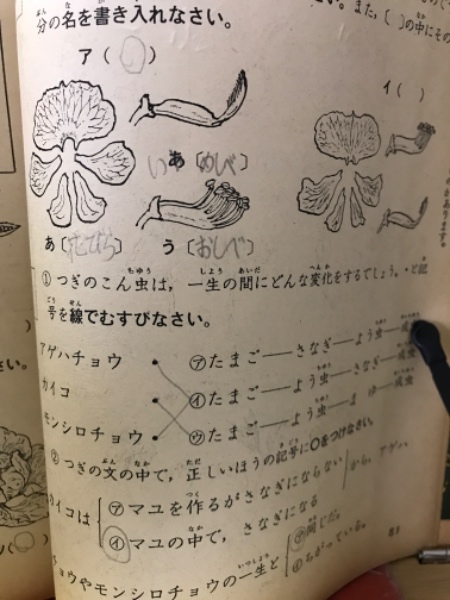 分の名を書き入れなさい。
い。また,( )の中にその
ア( ○ )
イ( )
い〔めしべ〕
あ〔花びら〕
う〔おしべ〕
があります。
① つぎのこん虫は, 一生の間にどんな変化をするでしょう。・と記
号を線でむすびなさい。
アゲハチョウ
㋐たまご──さなぎ──よう虫──成虫
カイコ
㋑たまご──よう虫──さなぎ──成虫
モンシロチョウ
㋒たまご──よう虫──ま
成虫
② つぎの文の中で, 正しいほうの記号に○をつけなさい。
カイコは
㋐マユを作るがさなぎにならない
㋑マユの中で, さなぎになる
から, アゲハ
チョウやモンシロチョウの一生と
㋐同じだ。
㋑ちがっている。
81